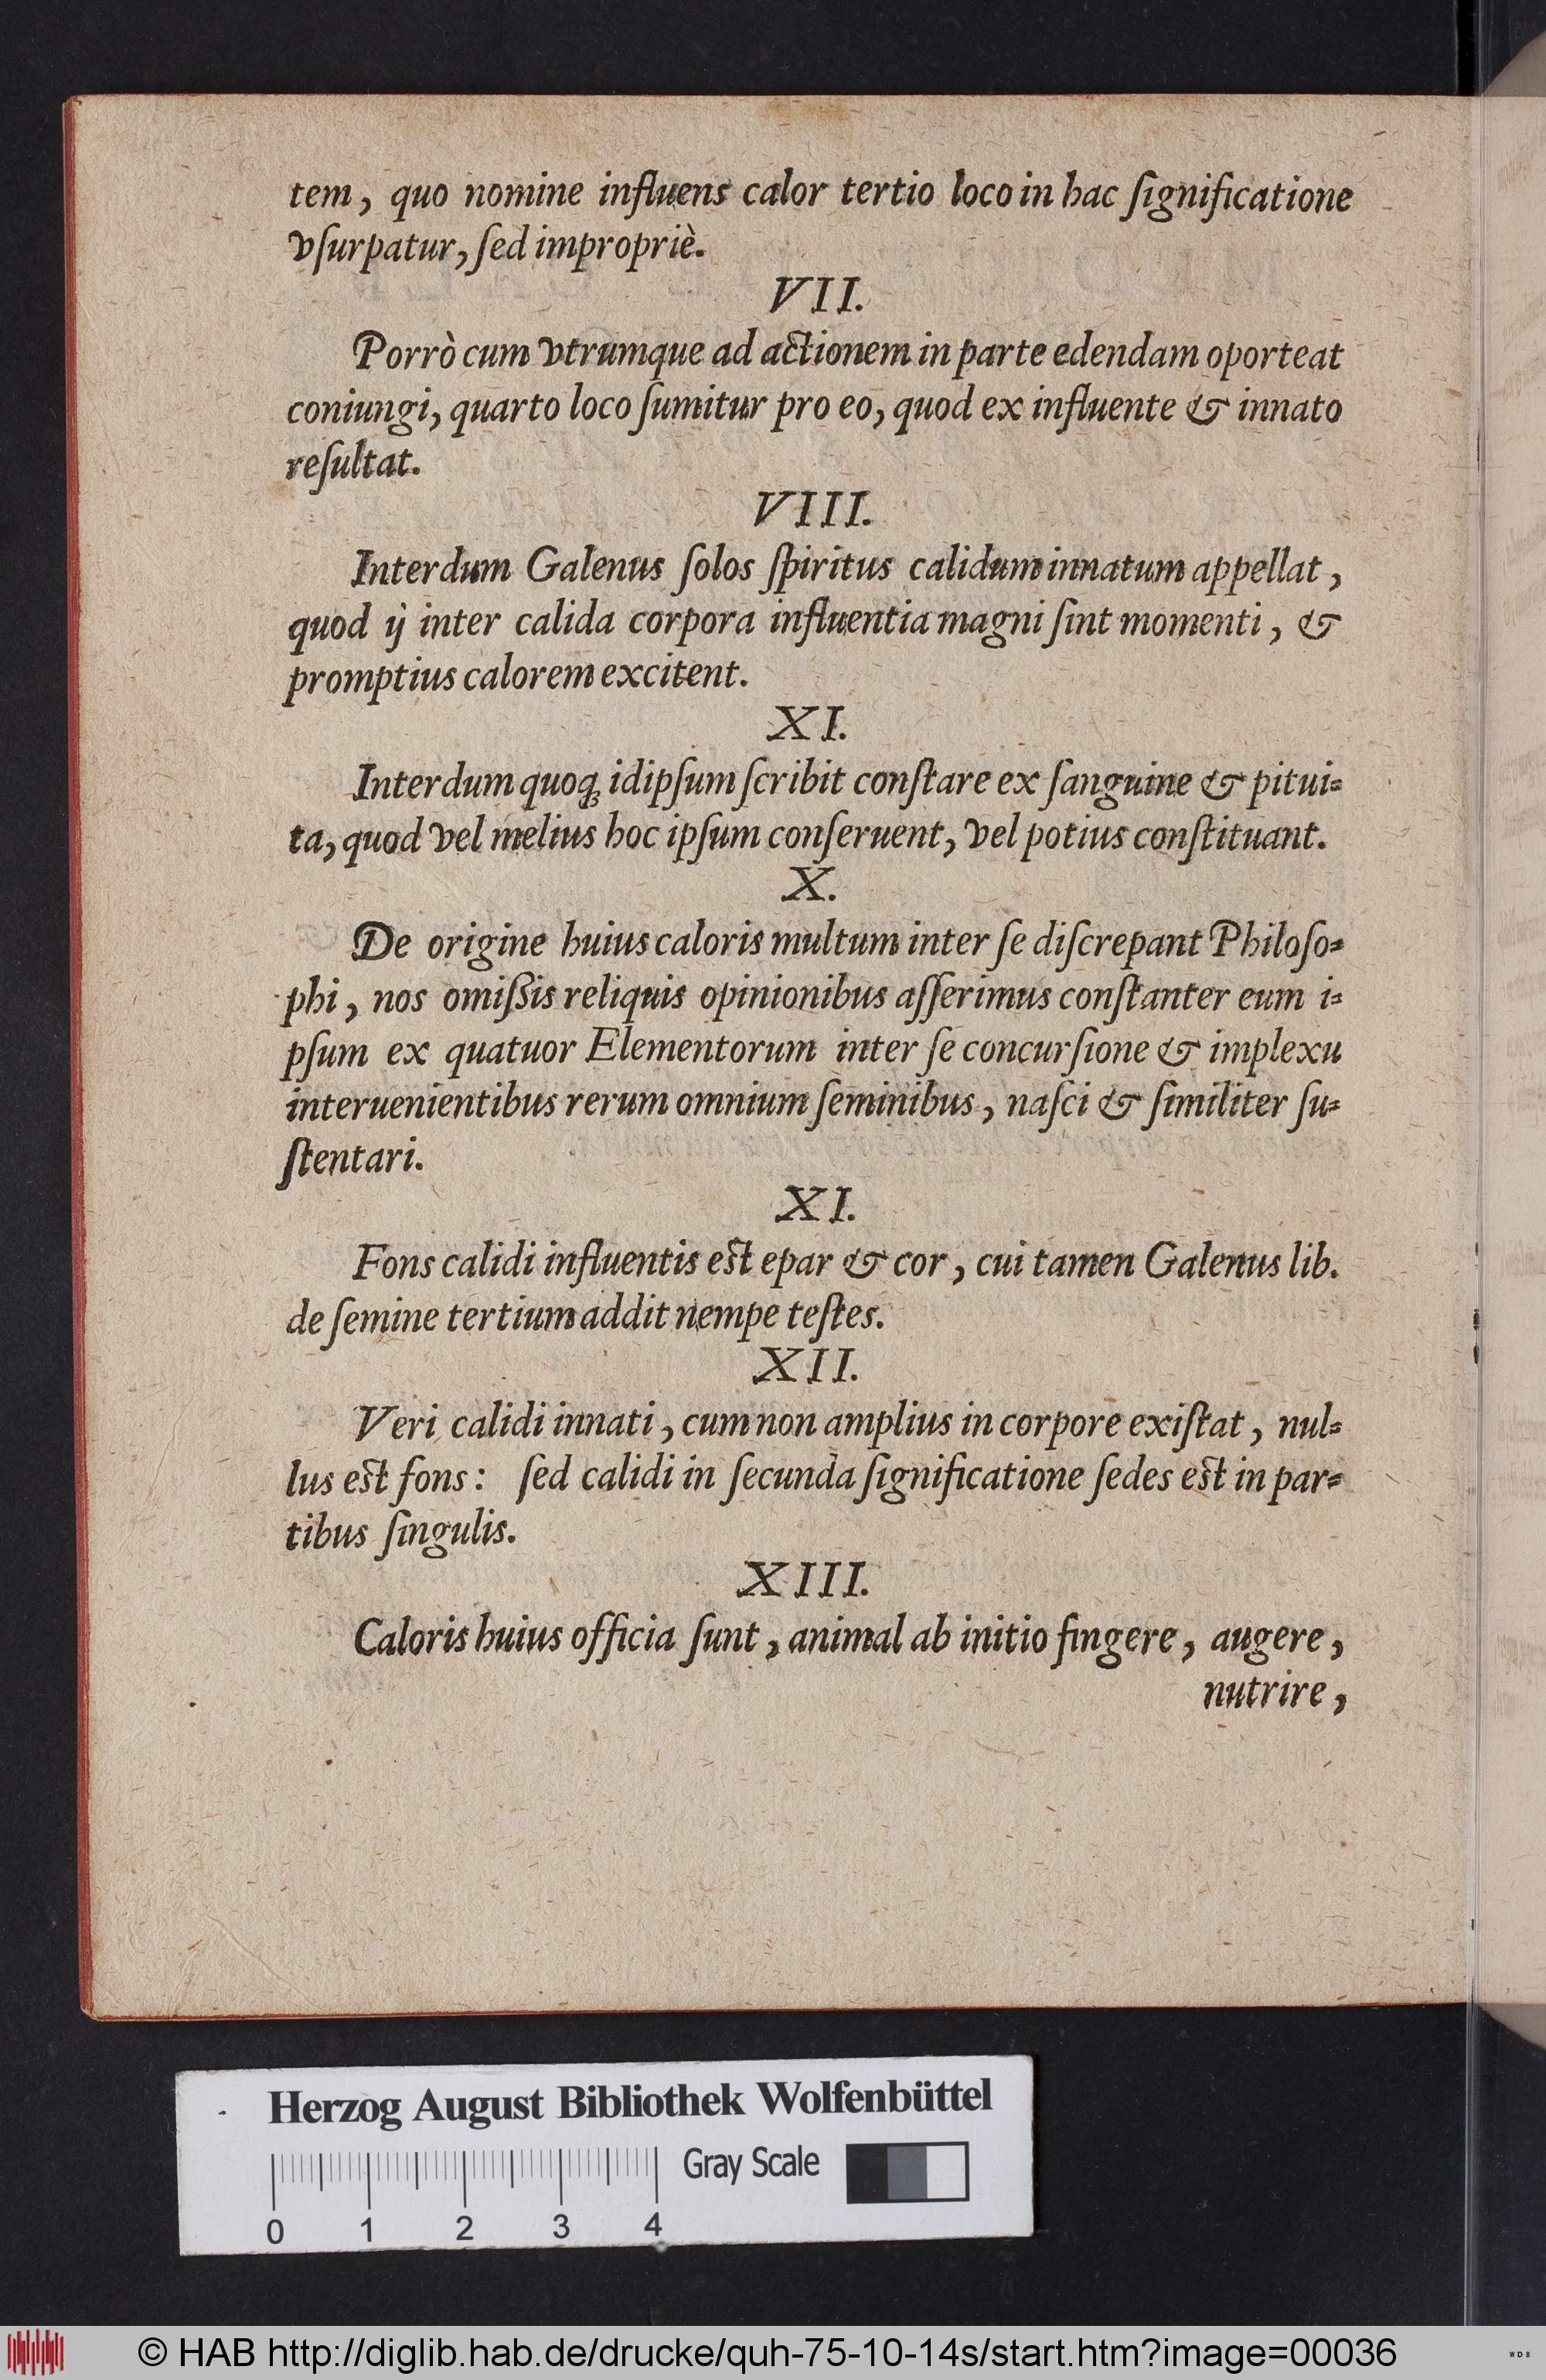 tem, quo nomine influens calor tertio loco in hac ſignificatione
vſurpatur, ſed impropriè.
VII.
Porrò cum vtrumque ad actionem in parte edendam oporteat
coniungi, quarto loco ſumitur pro eo, quod ex influente & innato
reſultat.
VIII.
Interdum Galenus ſolos ſpiritus calidum innatum appellat,
quod ij inter calida corpora influentia magni ſint momenti, &
promptius calorem excitent.
XI.
Interdum quoq; idipſum ſcribit conſtare ex ſanguine & pitui-
ta, quod vel melius hoc ipſum conſeruent, vel potius conſtituant.
X.
De origine huius caloris multum inter ſe diſcrepant Philoſo-
phi, nos omißis reliquis opinionibus aſſerimus conſtanter eum i-
pſum ex quatuor Elementorum inter ſe concurſione & implexu
interuenientibus rerum omnium ſeminibus, naſci & ſimiliter ſu-
ſtentari.
XI.
Fons calidi influentis eſt epar & cor, cui tamen Galenus lib.
de ſemine tertium addit nempe teſtes.
XII.
Veri calidi innati, cum non amplius in corpore exiſtat, nul-
lus eſt fons: ſed calidi in ſecunda ſignificatione ſedes eſt in par-
tibus ſingulis.
XIII.
Caloris huius officia ſunt, animal ab initio fingere, augere,
nutrire,
Herzog August Bibliothek Wolfenbüttel
Gray Scale
0 1 2 3 4
© HAB http://diglib.hab.de/drucke/quh-75-10-14s/start.htm?image=00036
WDB